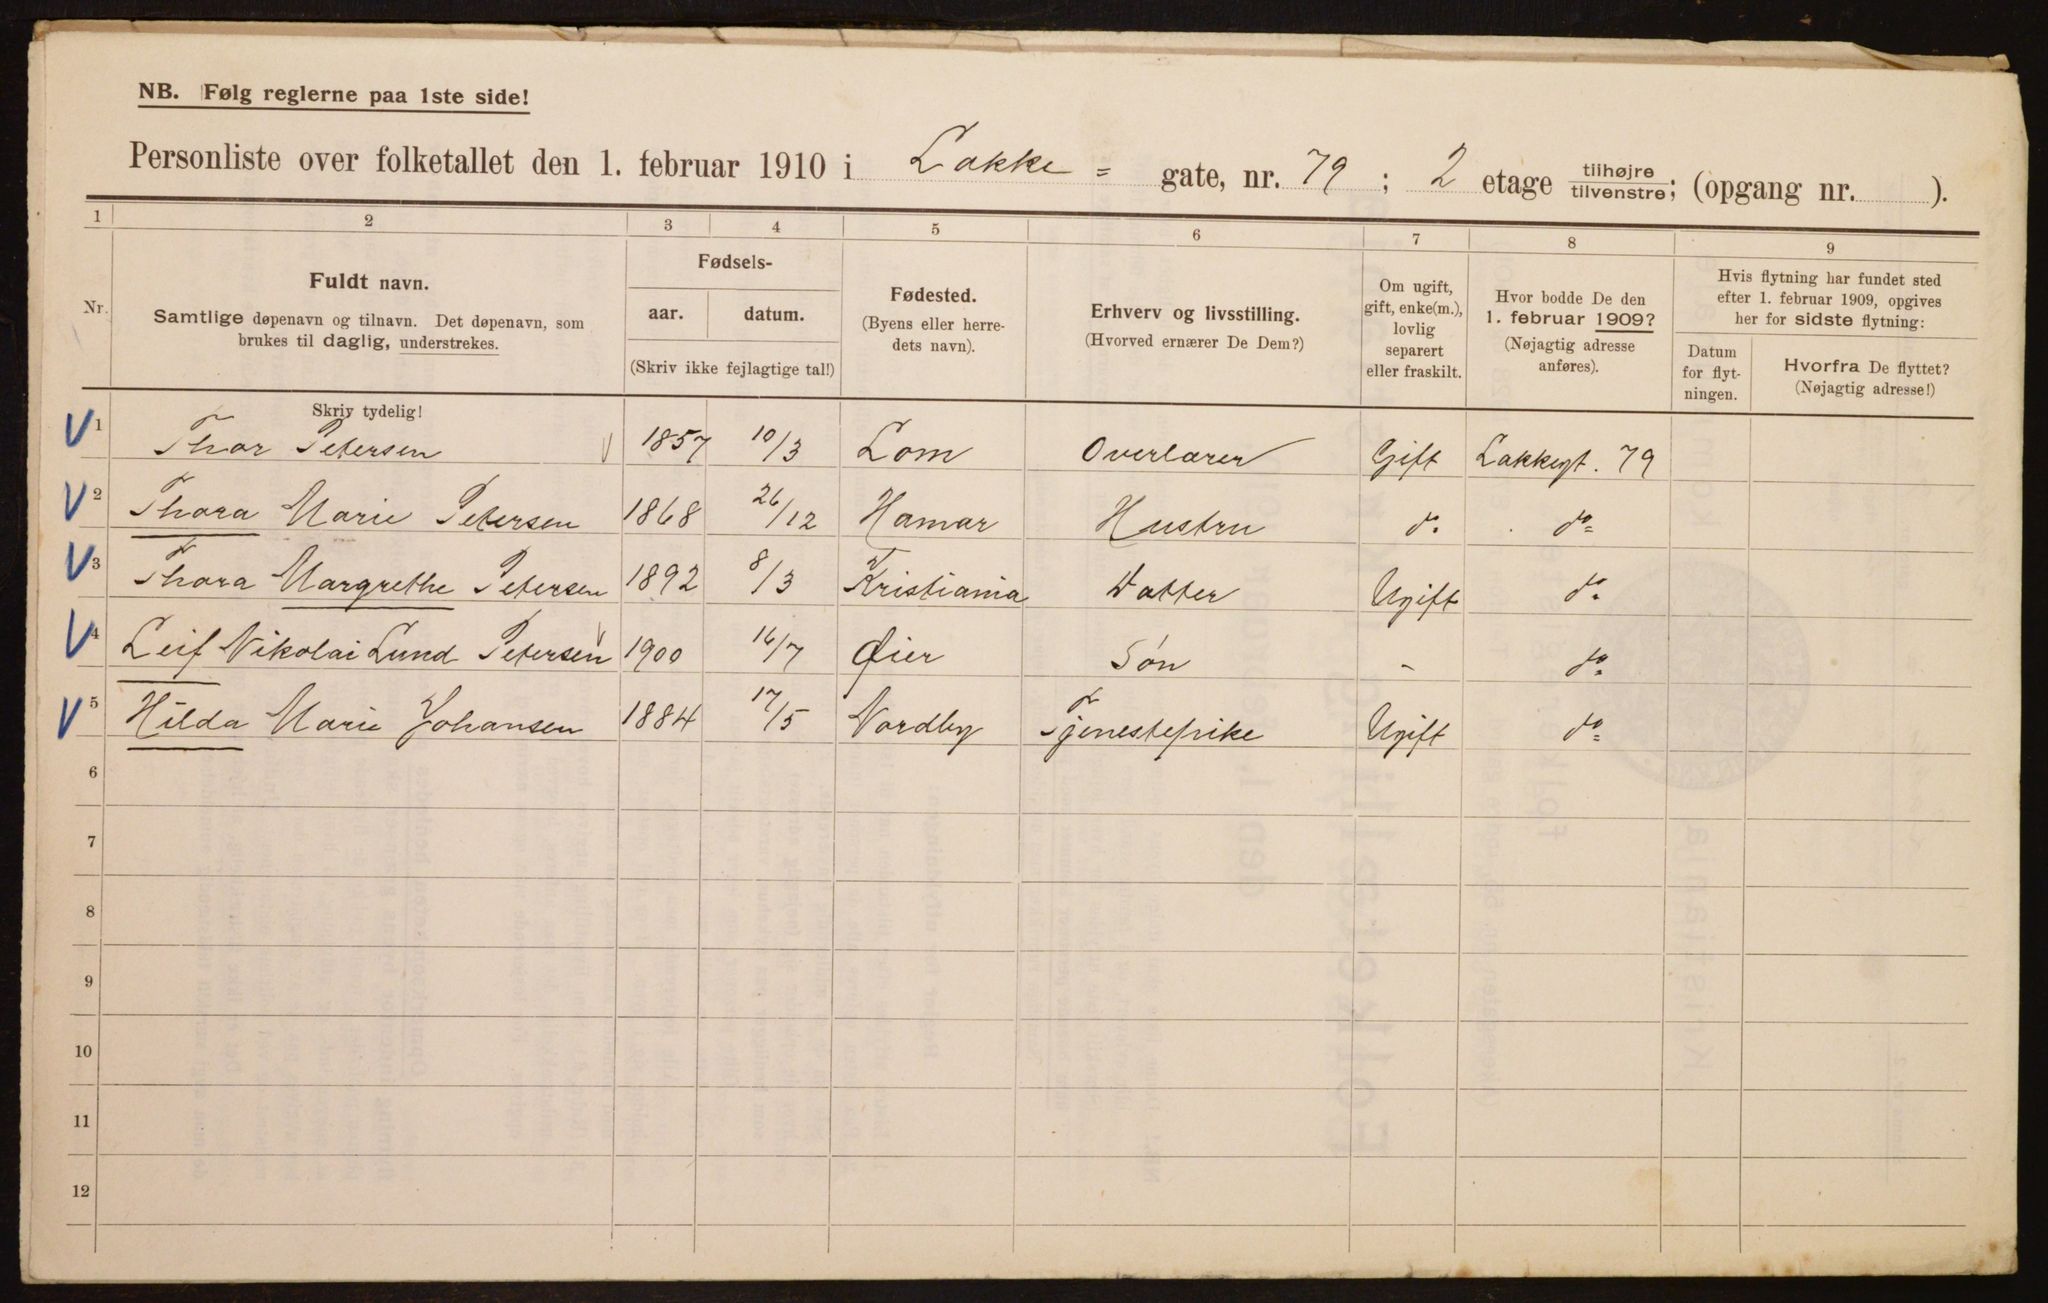 NB. Følg reglerne paa 1ste side!
Personliste over folketallet den 1. februar 1910 i Lakke= gate, nr. 79; 2 etage tilhøjre/tilvenstre; (opgang nr. ).
1 2 3 4 5 6 7 8 9
Nr.
Fuldt navn.
Samtlige døpenavn og tilnavn. Det døpenavn, som
brukes til daglig, understrekes.
Skriv tydelig!
Fødsels-
aar. datum.
(Skriv ikke fejlagtige tal!)
Fødested.
(Byens eller herre-
dets navn).
Erhverv og livsstilling.
(Hvorved ernærer De Dem?)
Om ugift,
gift, enke(m.),
lovlig
separert
eller fraskilt.
Hvor bodde De den
1. februar 1909?
(Nøjagtig adresse
anføres).
Hvis flytning har fundet sted
efter 1. februar 1909, opgives
her for sidste flytning:
Datum
for flyt-
ningen.
Hvorfra De flyttet?
(Nøjagtig adresse!)
1 Thor Petersen 1857 10/3 Lom Overlærer Gift Lakkegt. 79
2 Thora Marie Petersen 1868 26/12 Hamar Hustru do do
3 Thora Margrethe Petersen 1892 8/3 Kristiania Datter Ugift do
4 Leif Nikolai Lund Petersen 1900 16/7 Øier Søn - do
5 Hilda Marie Johansen 1884 17/5 Nordby Tjenestepike Ugift do
6
7
8
9
10
11
12